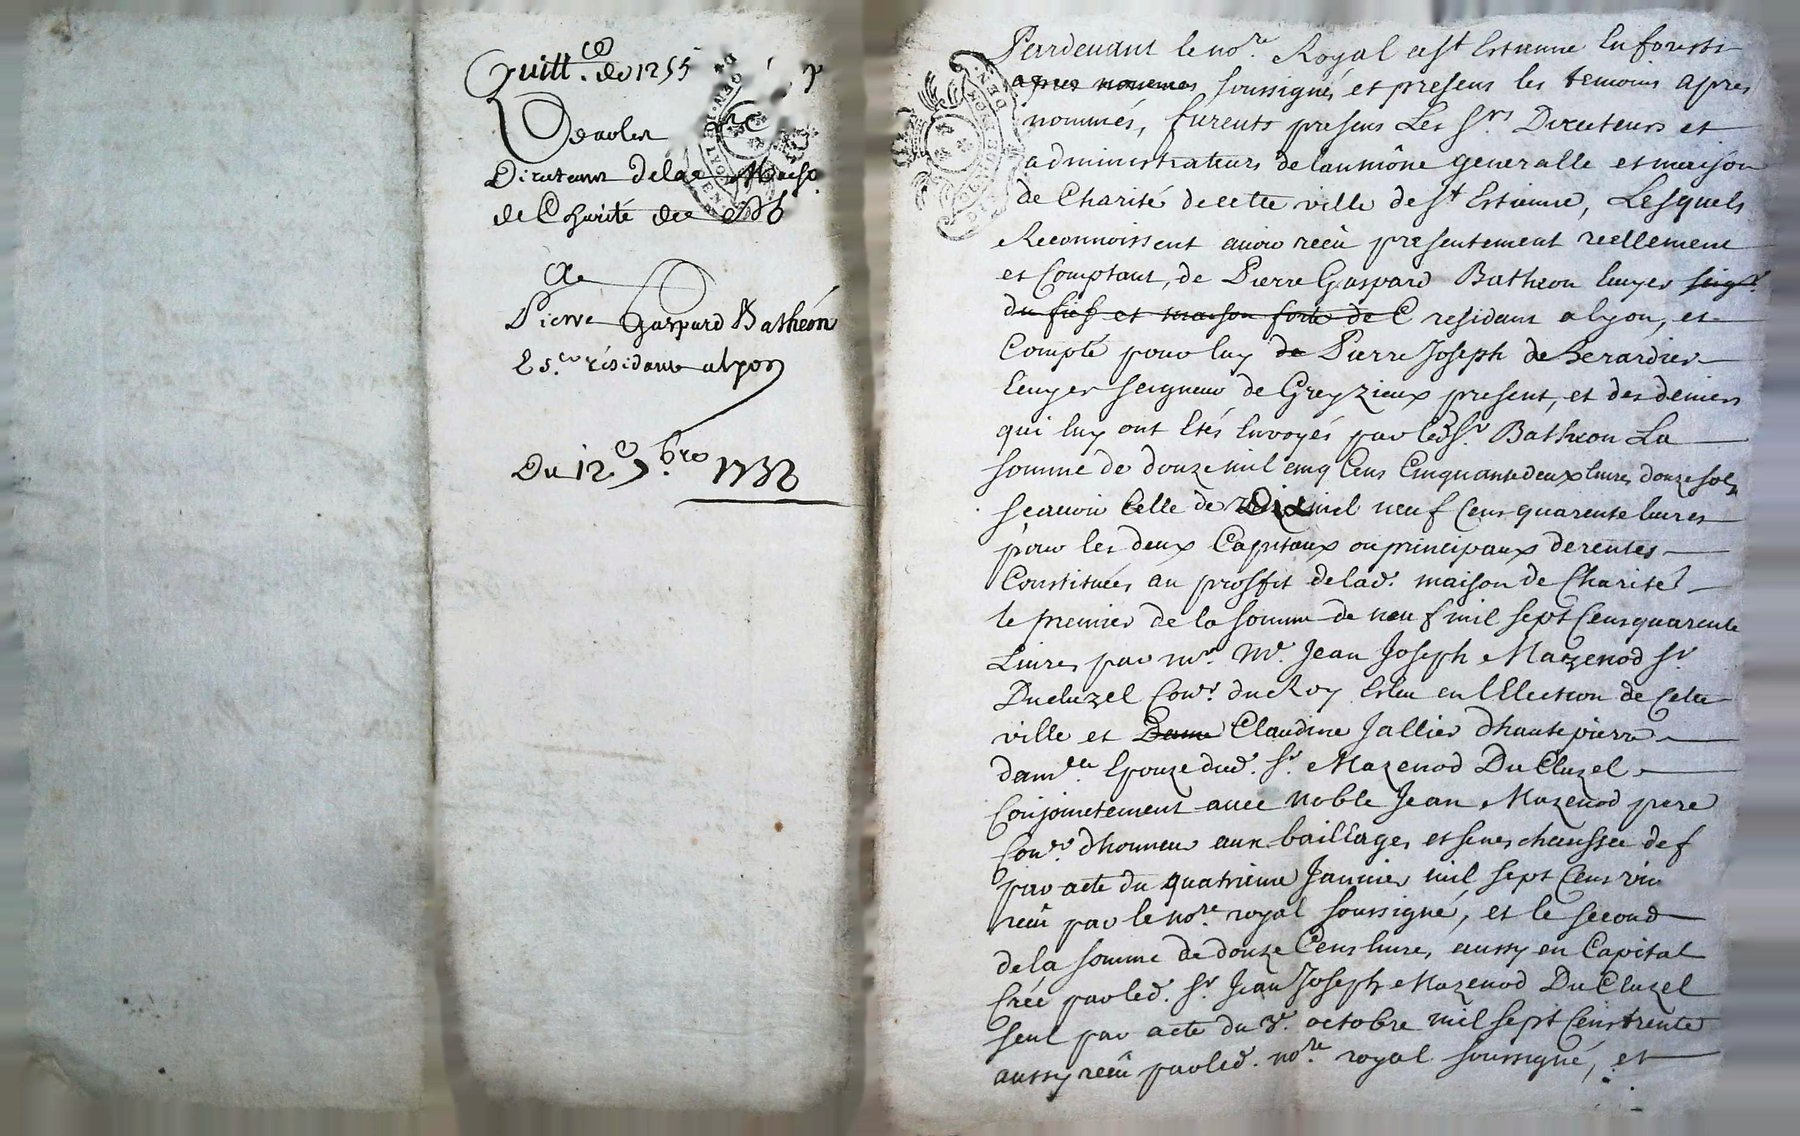 Quitt.ce de 1255
de
Directeurs de la Maiso
de Charité de
de
Pierre Gaspard Bathéon
Es.er résidant a lyon
Du 12e 7.bre 1732
Pardevant le nore Royal a st Estienne En forests
apres nommés soussigné, et presens les temoins apres
nommés, furents presens Les Srs Directeurs et
administrateurs de laumône generalle et maison
de Charité de cette ville de st Estienne, Lesquels
Reconnoissent avoir reçü presentement reellement
et Comptant, de Pierre Gaspard Batheon Ecuyer seigr
du fief et maison forte de C residant a lyon, et
Compté pour luy de Pierre Joseph de Berardier
Ecuyer seigneur de Greyzieux present, et des deniers
qui luy ont Etés Envoyés par led. Sr Batheon La
somme de douze mil cinq Cens Cinquante deux livres douze sols
scavoir Celle de Dix mil neuf Cens quarente livres
pour les deux Capitaux ou principaux de rentes
Constituées au proffit de lad. maison de Charité
le premier de la somme de neuf mil sept Cens quarente
Livres par mre. Me. Jean Joseph Mazenod Sr
Ducluzel Conr. du Roy Esleu en l'Election de Cette
ville et Dame Claudine Jallier d'hautepierre
damlle. Epouze dud. Sr. Mazenod Du Cluzel
Conjointement avec noble Jean Mazenod pere
Conr. dhonneur aux baillages et seneschaussée de f
par acte du quatrieme Janvier mil sept Cens vin
reçu par le nore royal soussigné, et le second
de la somme de douze Cens livres, aussy en Capital
Créé par led. Sr Jean Joseph Mazenod Du Cluzel
seul par acte du 3e. octobre mil sept Cens trente
aussy reçü par led. nore royal soussigné, et